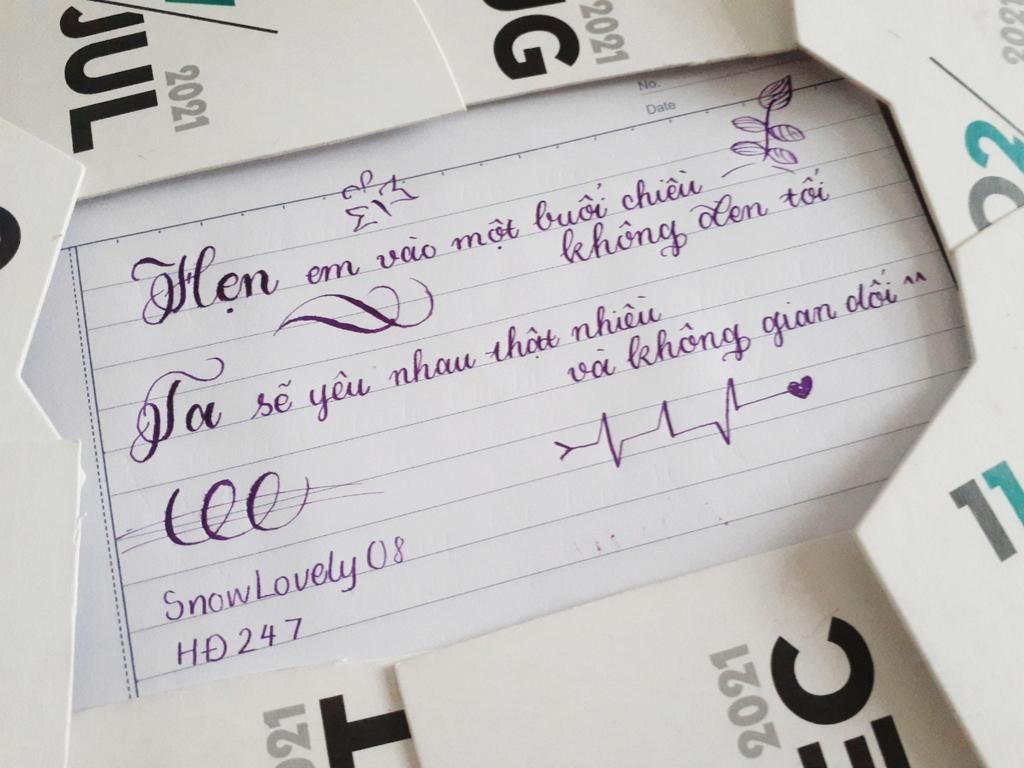 JUL
2021
UG
2021
2021
02
No.
Date
Hẹn em vào một buổi chiều
không đen tối
Ta sẽ yêu nhau thật nhiều
và không gian dối ^^
SnowLovely08
HĐ247
11
2021
EC
021
T